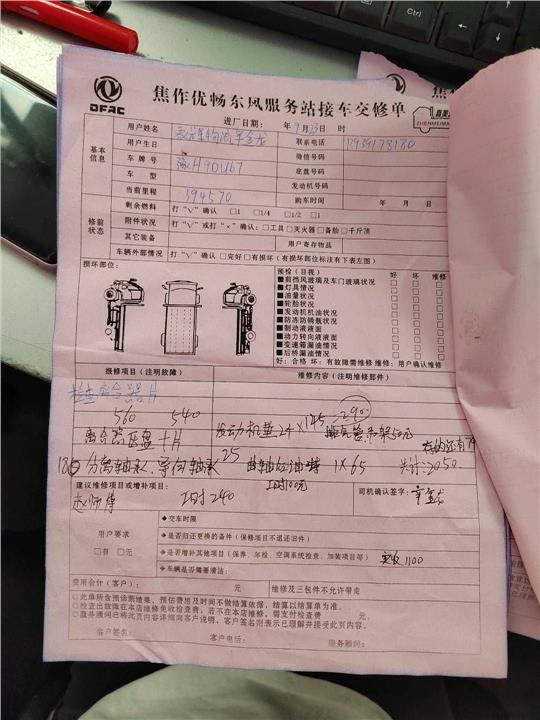 DFAC
焦作优畅东风服务站接车交修单
ZHENMEIMA
进厂日期： 年9月23日 时
基本信息
用户姓名
联系电话
用户生日
微信号码
车牌号 豫H9DU67
底盘号码
车 型
发动机号码
当前里程 394570
购车时间 年 月 日
修前状态
剩余燃料 打“√”确认 □1 □1/4 □1/2 □1
附件状况 打“√”或打“×”确认：□工具□灭火器□备胎□千斤顶
其它装备
用户寄存物品
车辆外部情况 打“√”确认 □完好□有损坏（有损坏部位标注有下表左图）
损坏部位：
预检（目视） 好 坏 维修
■前挡风玻璃及车门玻璃状况 □ □ □
■灯具情况 □ □ □
■油量状况 □ □ □
■轮胎状况 □ □ □
■发动机机油状况 □ □ □
■防冻防锈瓶状况 □ □ □
■制动液液面 □ □ □
■动力转向液液面 □ □ □
■变速箱漏油情况 □ □ □
■后桥漏油情况 □ □ □
好：合格 坏：有故障需维修 维修：用户确认维修
报修项目（注明故障）
维修内容（注明维修部件）
检查离合器片
560 540
离合器压盘 十片
发动机垫2个×145=290
排气管吊架50元
180分离轴承、导向轴承25
曲轴后油封 1×65
共计：2050
工时100元
建议维修项目或增补项目：
赵师傅
工时240
司机确认签字：
用户要求
□有 □无
◆交车时限
◆是否归还更换的备件（保修项目不退还旧件）
◆是否增补其他项目（保养、年检、空调系统检查、加装项目等）
实收1100
◆车辆是否需要清洁：
费用合计（客户）： 元
维修及三包件不允许带走
○此单所含预诊断结果，预估费用及时间不做结算依据，结算以结算单为准。
○检查出故障在本店维修免收检查费，若不在本店维修，需支付检查费 元。
○服务顾问已将此页内容详细向客户说明，客户签名则表示已理解并接受此页内容。
客户签名：
客户电话：
服务顾问：